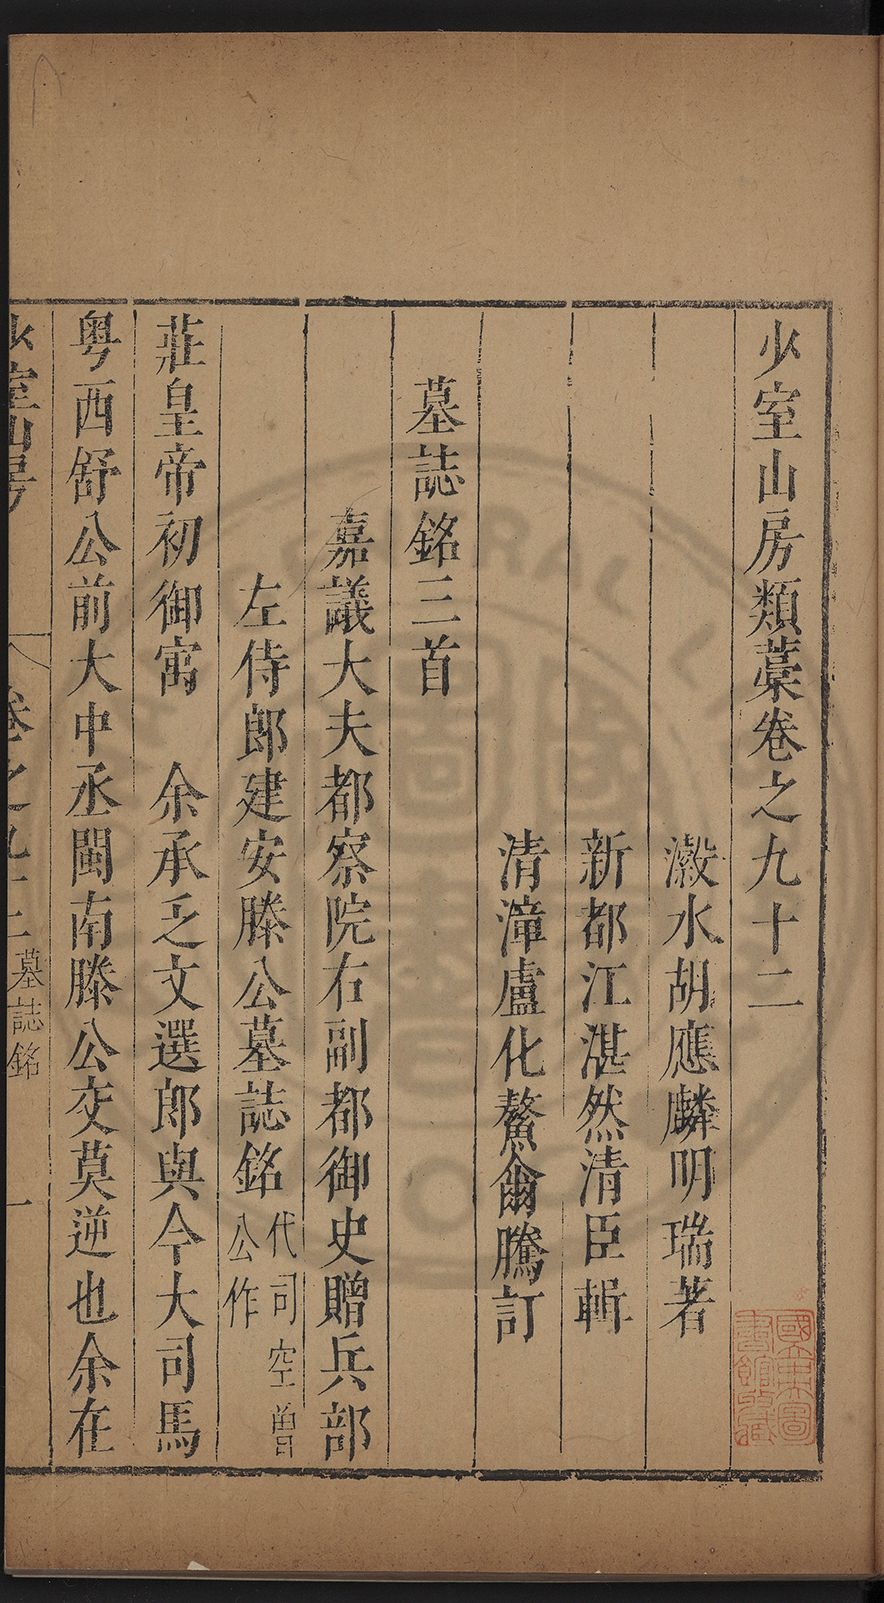 少室山房類藁卷之九十二
瀫水胡應麟明瑞著
新都江湛然清臣輯
清漳盧化鰲爾騰訂
墓誌銘三首
嘉議大夫都察院右副都御史贈兵部
左侍郎建安滕公墓誌銘 代司空曾公作
莊皇帝初御寓 余承乏文選郎與今大司馬
粤西舒公前大中丞閩南滕公交莫逆也余在
少室山房 卷之九十二 墓誌銘 一
國立中央圖書館收藏